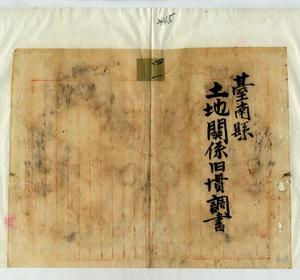 臺南縣
土地關係旧慣調書